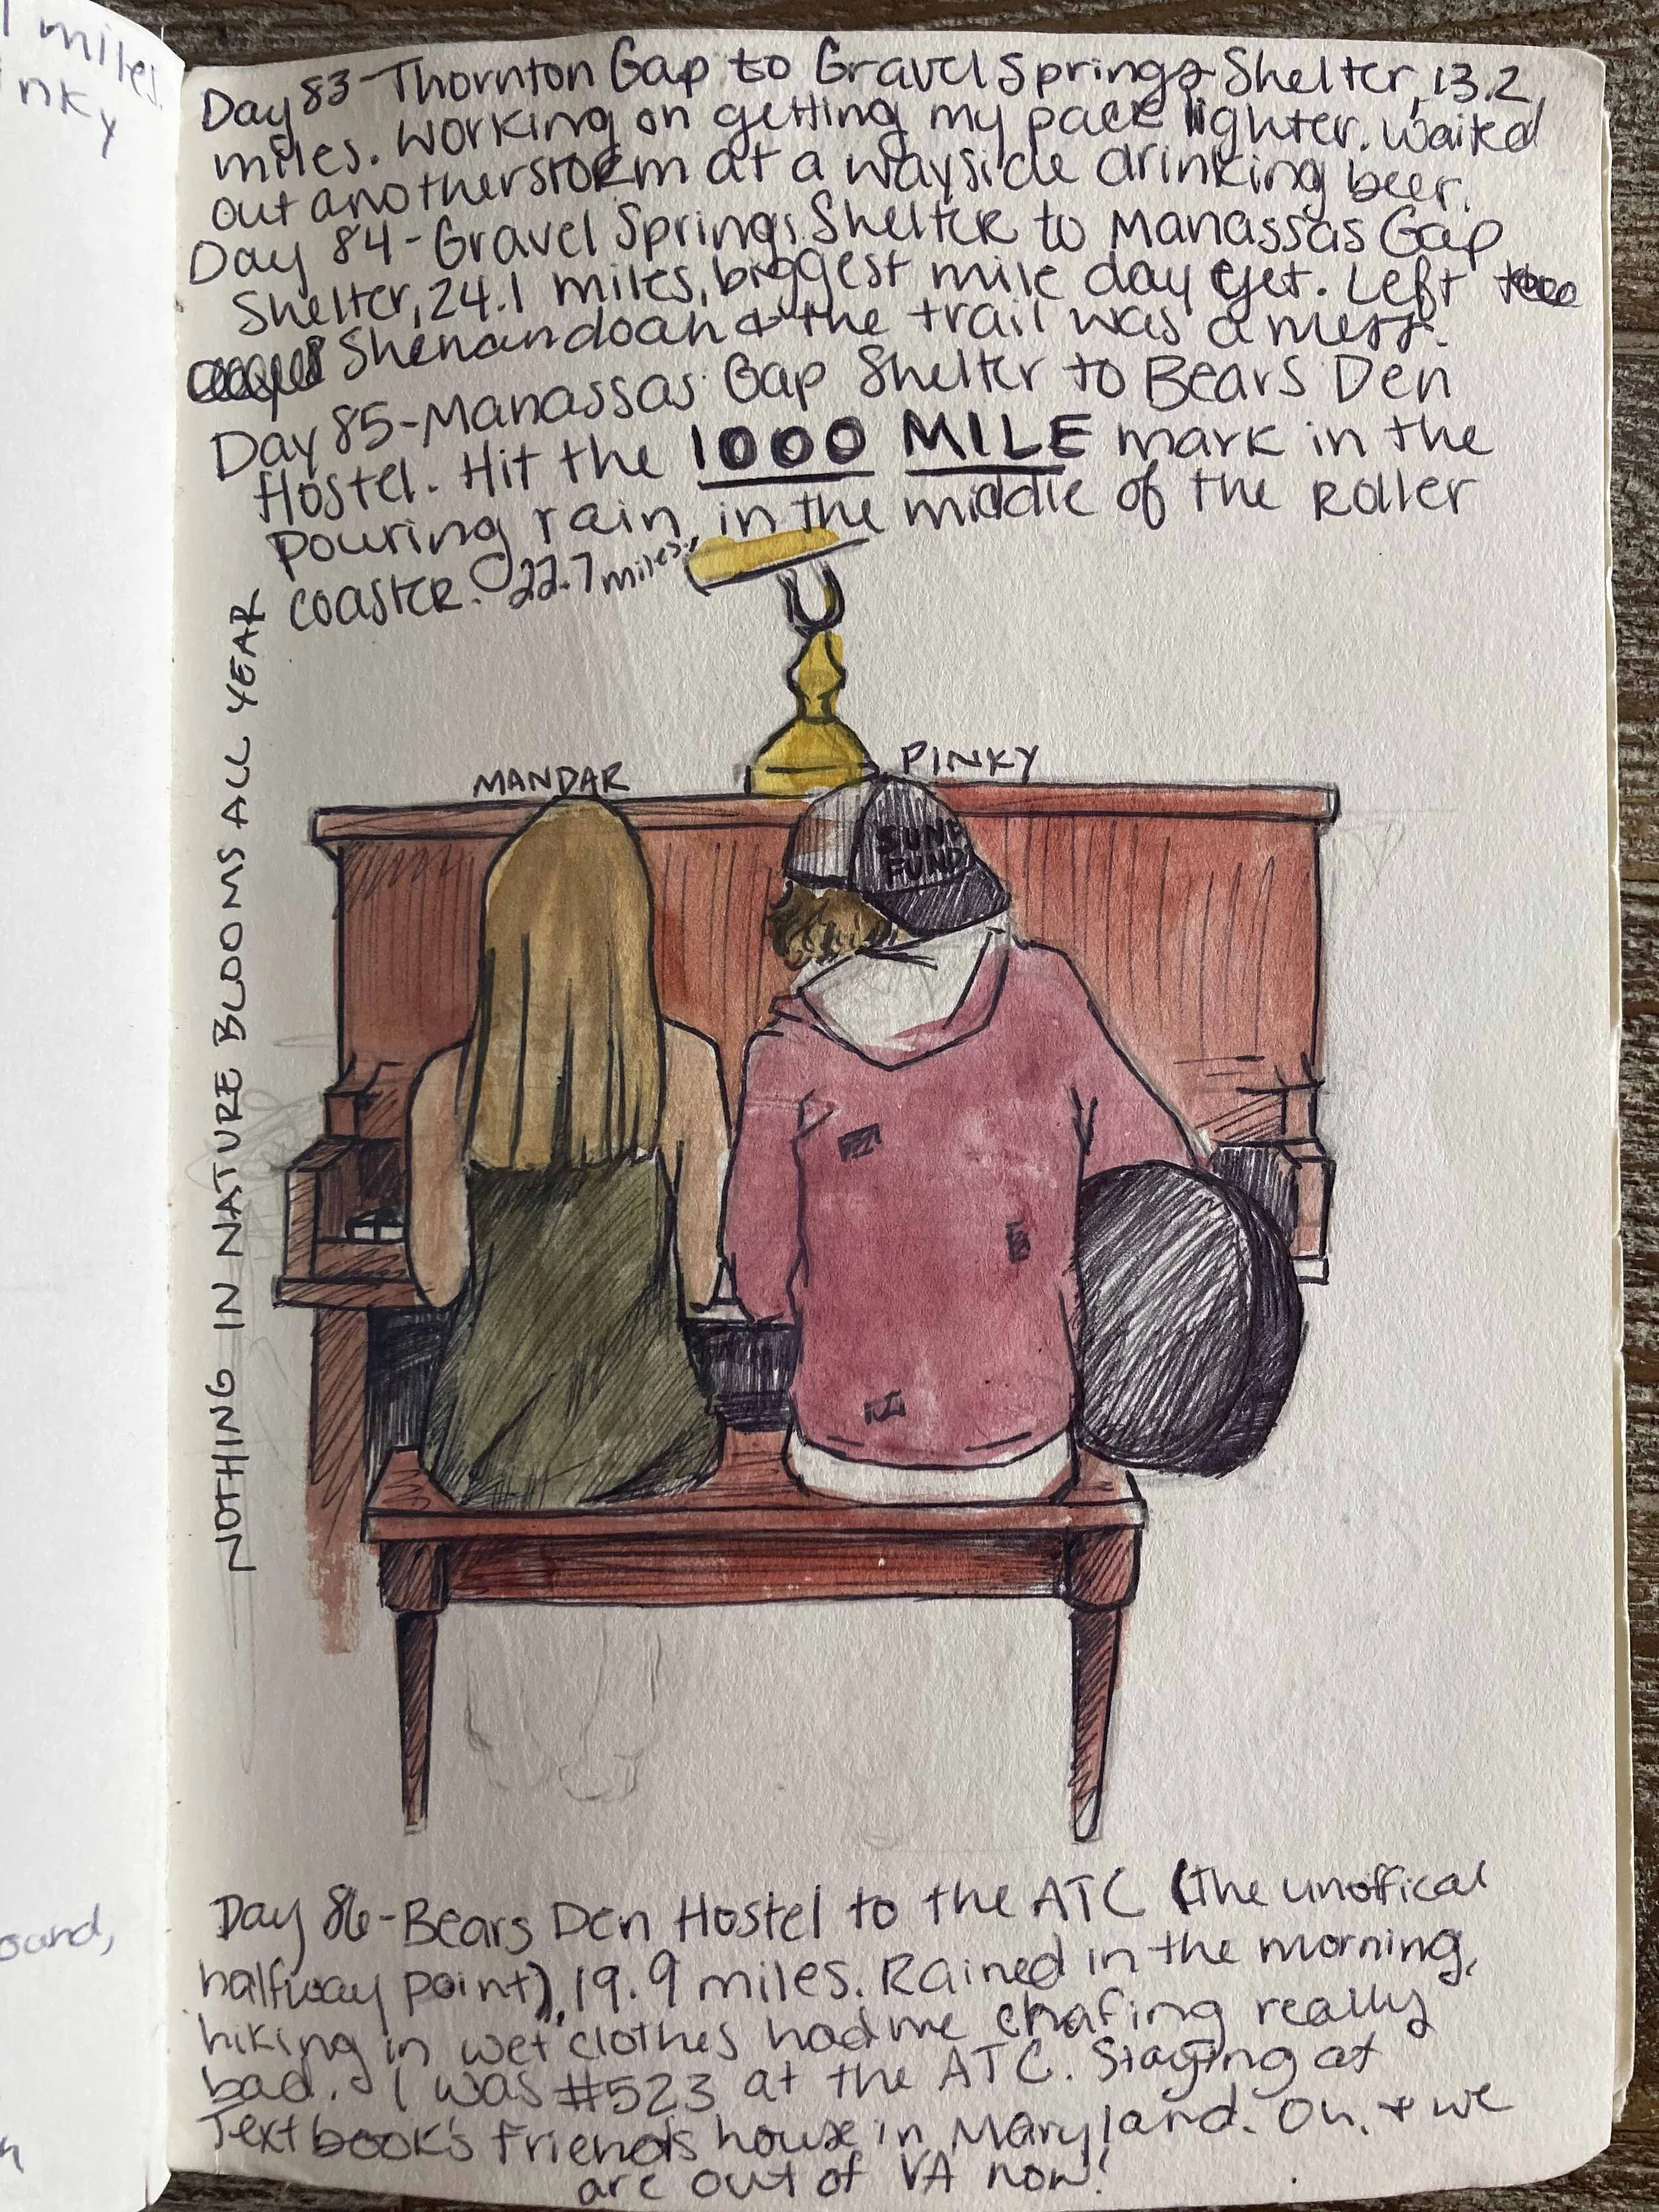 l miles.
inky
Day 83-Thornton Gap to Gravel Springs Shelter, 13.2
miles. Working on getting my pack lighter. Waited
out another storm at a wayside drinking beer.
Day 84-Gravel Springs Shelter to Manassas Gap
Shelter, 24.1 miles, biggest mile day yet. Left
Shenandoah & the trail was a mess.
Day 85-Manassas Gap Shelter to Bears Den
Hostel. Hit the 1000 MILE mark in the
pouring rain, in the middle of the Roller
coaster. 22.7 miles.
NOTHING IN NATURE BLOOMS ALL YEAR
MANDAR
PINKY
SUN
FUND
Day 86-Bears Den Hostel to the ATC (The unoffical
halfway point), 19.9 miles. Rained in the morning,
hiking in wet clothes had me chafing really
bad. I was #523 at the ATC. Staying at
Textbook's friends house in Maryland. Oh, & we
are out of VA now!